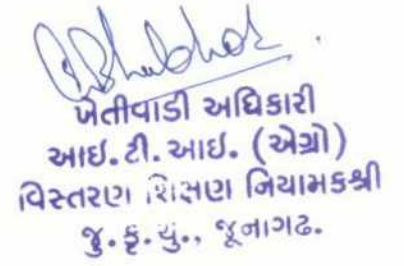 ખેતીવાડી અધિકારી
આઇ.ટી.આઇ. (એગ્રો)
વિસ્તરણ શિક્ષણ નિયામકશ્રી
જુ.કૃ.યુ., જૂનાગઢ.